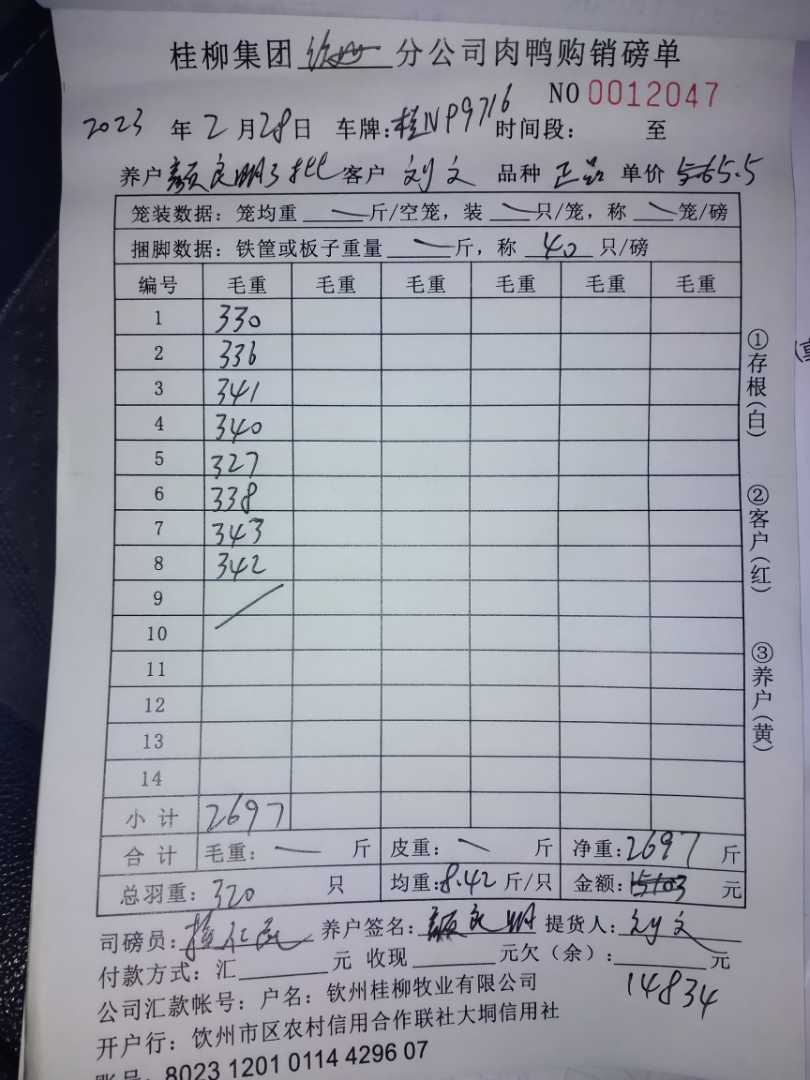 桂柳集团 钦州 分公司肉鸭购销磅单
NO 0012047
2023 年 2 月 28 日 车牌:桂NP9716 时间段: 至
养户 颜良明3批 客户 刘文 品种 正品 单价 5.5
笼装数据:笼均重 斤/空笼,装 只/笼,称 笼/磅
捆脚数据:铁筐或板子重量 斤,称 40 只/磅
编号 毛重 毛重 毛重 毛重 毛重 毛重
1 330
2 336
3 341
4 340
5 327
6 338
7 343
8 342
9
10
11
12
13
14
小 计 2697
合 计 毛重: 斤 皮重: 斤 净重:2697 斤
总羽重:320 只 均重:8.42 斤/只 金额:15103 元
司磅员: 养户签名:颜良明 提货人:刘文
付款方式:汇 元 收现 元欠(余): 元
14834
公司汇款帐号:户名:钦州桂柳牧业有限公司
开户行:钦州市区农村信用合作联社大垌信用社
账号:8023 1201 0114 4296 07
①存根(白)
②客户(红)
③养户(黄)